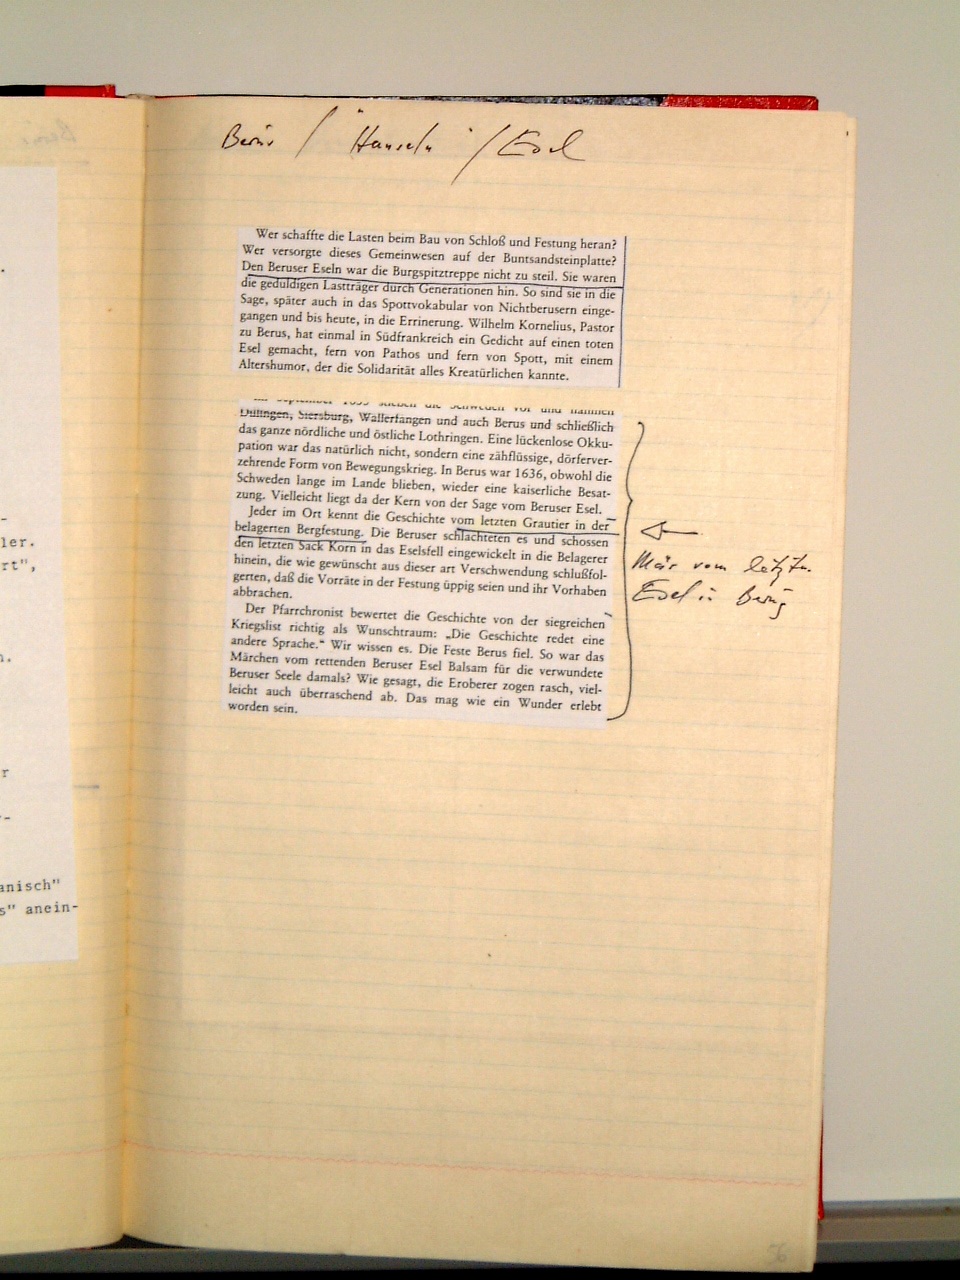 Berus / "Hanseln" / Esel
Wer schaffte die Lasten beim Bau von Schloß und Festung heran?
Wer versorgte dieses Gemeinwesen auf der Buntsandsteinplatte?
Den Beruser Eseln war die Burgspitztreppe nicht zu steil. Sie waren
die geduldigen Lastträger durch Generationen hin. So sind sie in die
Sage, später auch in das Spottvokabular von Nichtberusern einge-
gangen und bis heute, in die Errinerung. Wilhelm Kornelius, Pastor
zu Berus, hat einmal in Südfrankreich ein Gedicht auf einen toten
Esel gemacht, fern von Pathos und fern von Spott, mit einem
Altershumor, der die Solidarität alles Kreatürlichen kannte.
September 1635 stießen die Schweden vor und nahmen
Dillingen, Siersburg, Wallerfangen und auch Berus und schließlich
das ganze nördliche und östliche Lothringen. Eine lückenlose Okku-
pation war das natürlich nicht, sondern eine zähflüssige, dörferver-
zehrende Form von Bewegungskrieg. In Berus war 1636, obwohl die
Schweden lange im Lande blieben, wieder eine kaiserliche Besat-
zung. Vielleicht liegt da der Kern von der Sage vom Beruser Esel.
Jeder im Ort kennt die Geschichte vom letzten Grautier in der
belagerten Bergfestung. Die Beruser schlachteten es und schossen
den letzten Sack Korn in das Eselsfell eingewickelt in die Belagerer
hinein, die wie gewünscht aus dieser art Verschwendung schlußfol-
gerten, daß die Vorräte in der Festung üppig seien und ihr Vorhaben
abbrachen.
Der Pfarrchronist bewertet die Geschichte von der siegreichen
Kriegslist richtig als Wunschtraum: „Die Geschichte redet eine
andere Sprache.“ Wir wissen es. Die Feste Berus fiel. So war das
Märchen vom rettenden Beruser Esel Balsam für die verwundete
Beruser Seele damals? Wie gesagt, die Eroberer zogen rasch, viel-
leicht auch überraschend ab. Das mag wie ein Wunder erlebt
worden sein.
Mär vom letzten
Esel in Berus
ler.
rt",
n.
r
anisch"
s" anein-
56